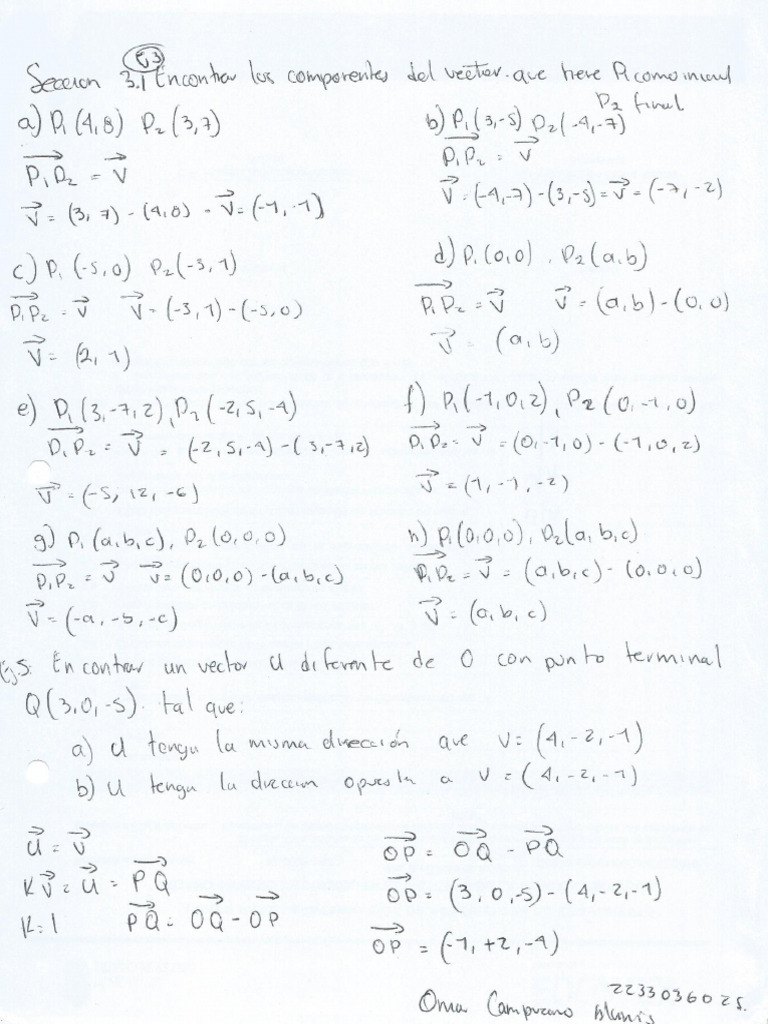 E3
Seccion 3.1 Encontrar los componentes del vector que tiene P1 como inicial
P2 final
a) P1 (4,8) P2 (3,7)
P1P2 = V
V = (3, 7) - (4,8) = V = (-1, -1)
b) P1 (3,-5) P2 (-4,-7)
P1P2 = V
V = (-4,-7) - (3,-5) = V = (-7, -2)
c) P1 (-5,0) P2 (-3,1)
P1P2 = V V = (-3, 1) - (-5, 0)
V = (2, 1)
d) P1 (0,0) . P2 (a,b)
P1P2 = V V = (a,b) - (0,0)
V = (a,b)
e) P1 (3,-7,2), P2 (-2,5,-4)
P1P2 = V = (-2,5,-4) - (3,-7,2)
V = (-5, 12, -6)
f) P1 (-1,0,2), P2 (0,-1,0)
P1P2 = V = (0,-1,0) - (-1,0,2)
V = (1, -1, -2)
g) P1 (a,b,c), P2 (0,0,0)
P1P2 = V V = (0,0,0) - (a,b,c)
V = (-a, -b, -c)
h) P1 (0,0,0), P2 (a,b,c)
P1P2 = V = (a,b,c) - (0,0,0)
V = (a,b,c)
Ej.5: Encontrar un vector U diferente de 0 con punto terminal
Q (3,0,-5). tal que:
a) U tenga la misma dirección que V = (4,-2,-1)
b) U tenga la direccion opuesta a V = (4,-2,-1)
U = V
KV = U = PQ
K=1 PQ = OQ - OP
OP = OQ - PQ
OP = (3, 0, -5) - (4, -2, -1)
OP = (-1, +2, -4)
2233036025.
Omar Campuzano